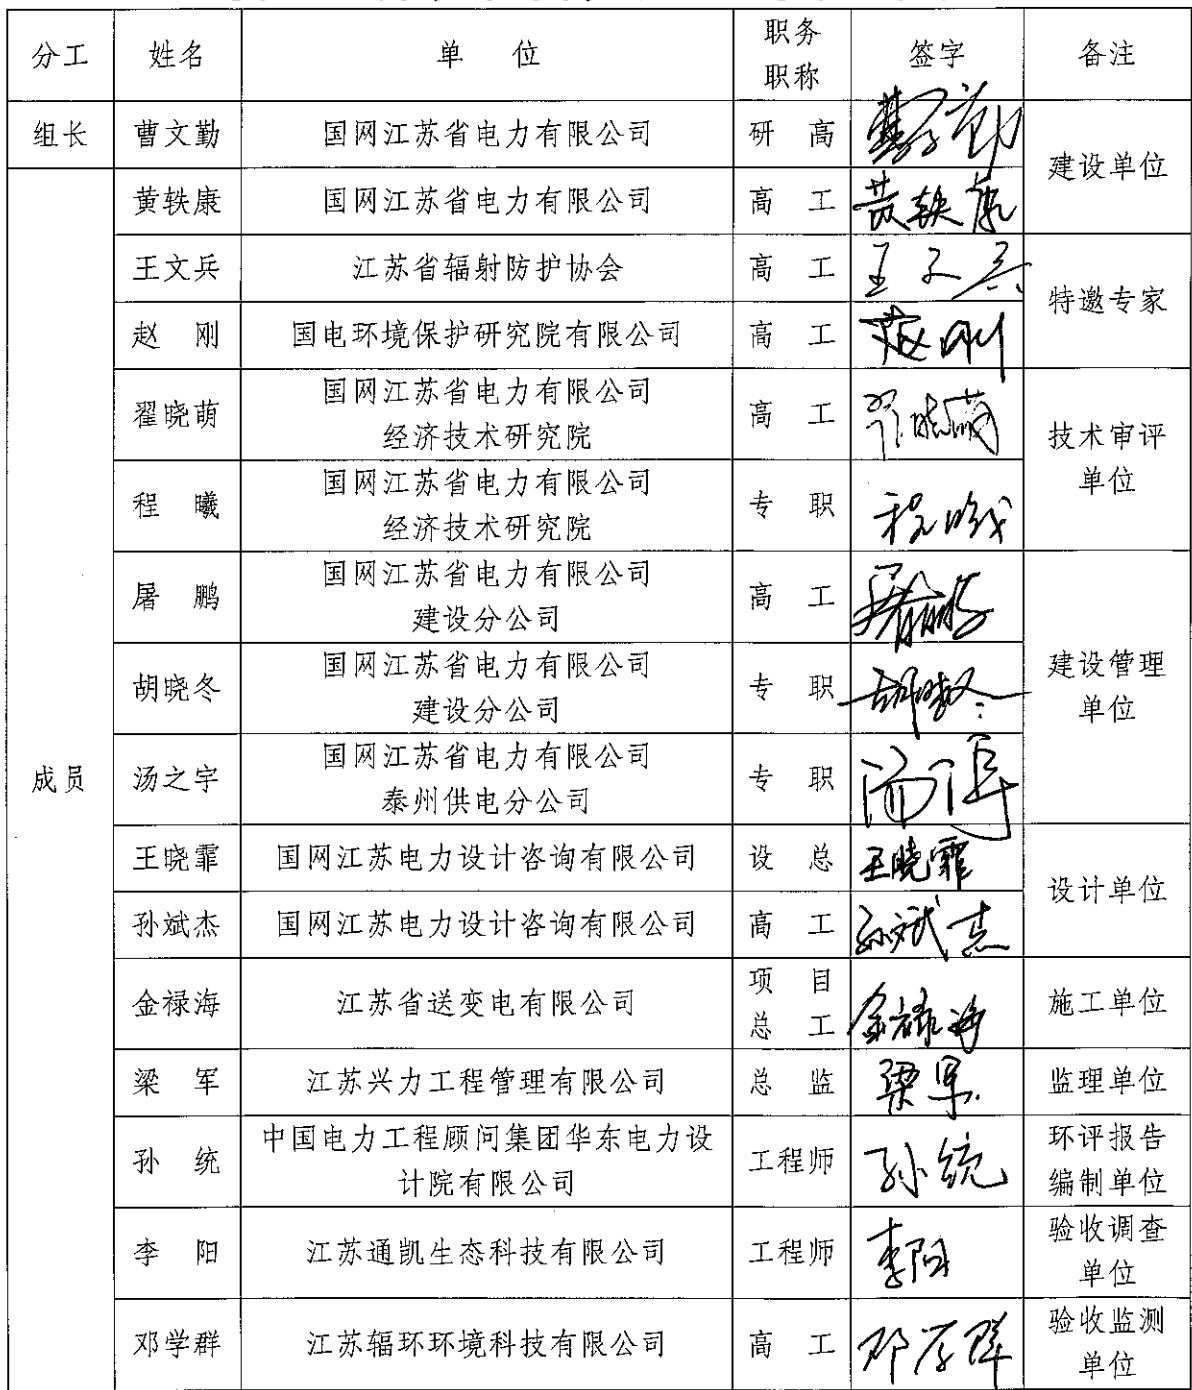 分工 姓名 单 位 职务职称 签字 备注
组长 曹文勤 国网江苏省电力有限公司 研 高 曹文勤 建设单位
成员 黄轶康 国网江苏省电力有限公司 高 工 黄轶康
王文兵 江苏省辐射防护协会 高 工 王文兵 特邀专家
赵 刚 国电环境保护研究院有限公司 高 工 赵刚
翟晓萌 国网江苏省电力有限公司经济技术研究院 高 工 翟晓萌 技术审评单位
程 曦 国网江苏省电力有限公司经济技术研究院 专 职 程曦
屠 鹏 国网江苏省电力有限公司建设分公司 高 工 屠鹏 建设管理单位
胡晓冬 国网江苏省电力有限公司建设分公司 专 职 胡晓冬
汤之宇 国网江苏省电力有限公司泰州供电分公司 专 职 汤之宇
王晓霏 国网江苏电力设计咨询有限公司 设 总 王晓霏 设计单位
孙斌杰 国网江苏电力设计咨询有限公司 高 工 孙斌杰
金禄海 江苏省送变电有限公司 项目总工 金禄海 施工单位
梁 军 江苏兴力工程管理有限公司 总 监 梁军 监理单位
孙 统 中国电力工程顾问集团华东电力设计院有限公司 工程师 孙统 环评报告编制单位
李 阳 江苏通凯生态科技有限公司 工程师 李阳 验收调查单位
邓学群 江苏辐环环境科技有限公司 高 工 邓学群 验收监测单位